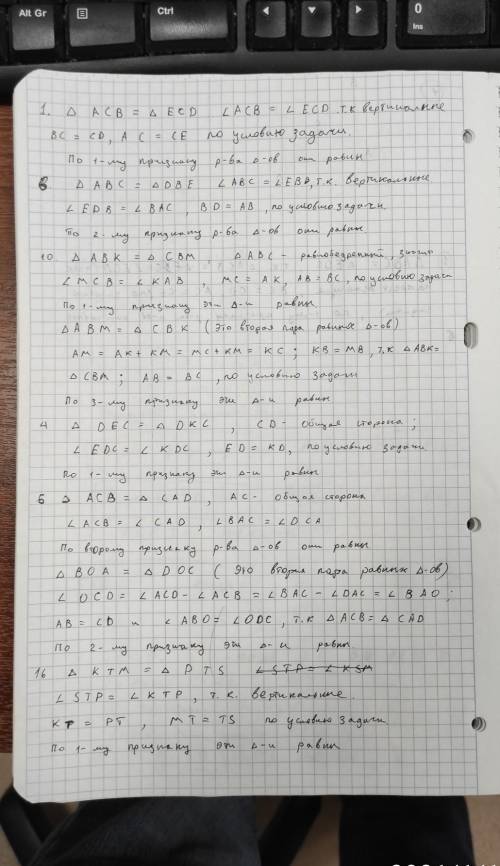 Alt Gr
Ctrl
0
Ins
1. Δ ACB = Δ ECD ∠ACB = ∠ECD т.к вертикальные
BC = CD, AC = CE по условию задачи.
По 1-му признаку р-ва Δ-ов они равны
8. Δ ABC = Δ DBE ∠ABC = ∠EBD, т.к. вертикальные
∠EDB = ∠BAC, BD = AB, по условию задачи
По 2-му признаку р-ва Δ-ов они равны
10. Δ ABK = Δ CBM, Δ ABC - равнобедренный, значит
∠MCB = ∠KAB, MC = AK, AB = BC, по условию задачи
По 1-му признаку эти Δ-и равны
Δ ABM = Δ CBK (это вторая пара равных Δ-ов)
AM = AK + KM = MC + KM = KC; KB = MB, т.к Δ ABK =
Δ CBM; AB = BC, по условию задачи
По 3-му признаку эти Δ-и равны
4 Δ DEC = Δ DKC, CD - общая сторона;
∠EDC = ∠KDC, ED = KD, по условию задачи
По 1-му признаку эти Δ-и равны
6 Δ ACB = Δ CAD, AC - общая сторона
∠ACB = ∠CAD, ∠BAC = ∠DCA
По второму признаку р-ва Δ-ов они равны
Δ BOA = Δ DOC (это вторая пара равных Δ-ов)
∠OCD = ∠ACD - ∠ACB = ∠BAC - ∠DAC = ∠BAO;
AB = CD и ∠ABO = ∠ODC, т.к Δ ACB = Δ CAD
По 2-му признаку эти Δ-и равны.
16 Δ KTM = Δ PTS ∠STP = ∠KSM
∠STP = ∠KTP, т.к. вертикальные.
KT = PT, MT = TS по условию задачи
По 1-му признаку эти Δ-и равны